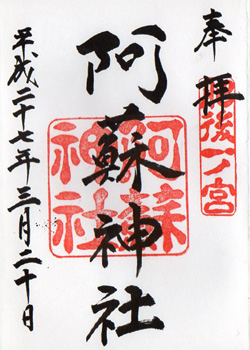 奉拝
肥後一ノ宮
阿蘇神社
阿蘇神社
平成二十七年三月二十日